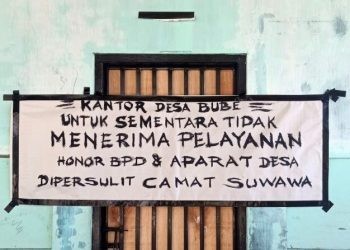 KANTOR DESA BUBE
UNTUK SEMENTARA TIDAK
MENERIMA PELAYANAN
HONOR BPD & APARAT DESA
DIPERSULIT CAMAT SUWAWA